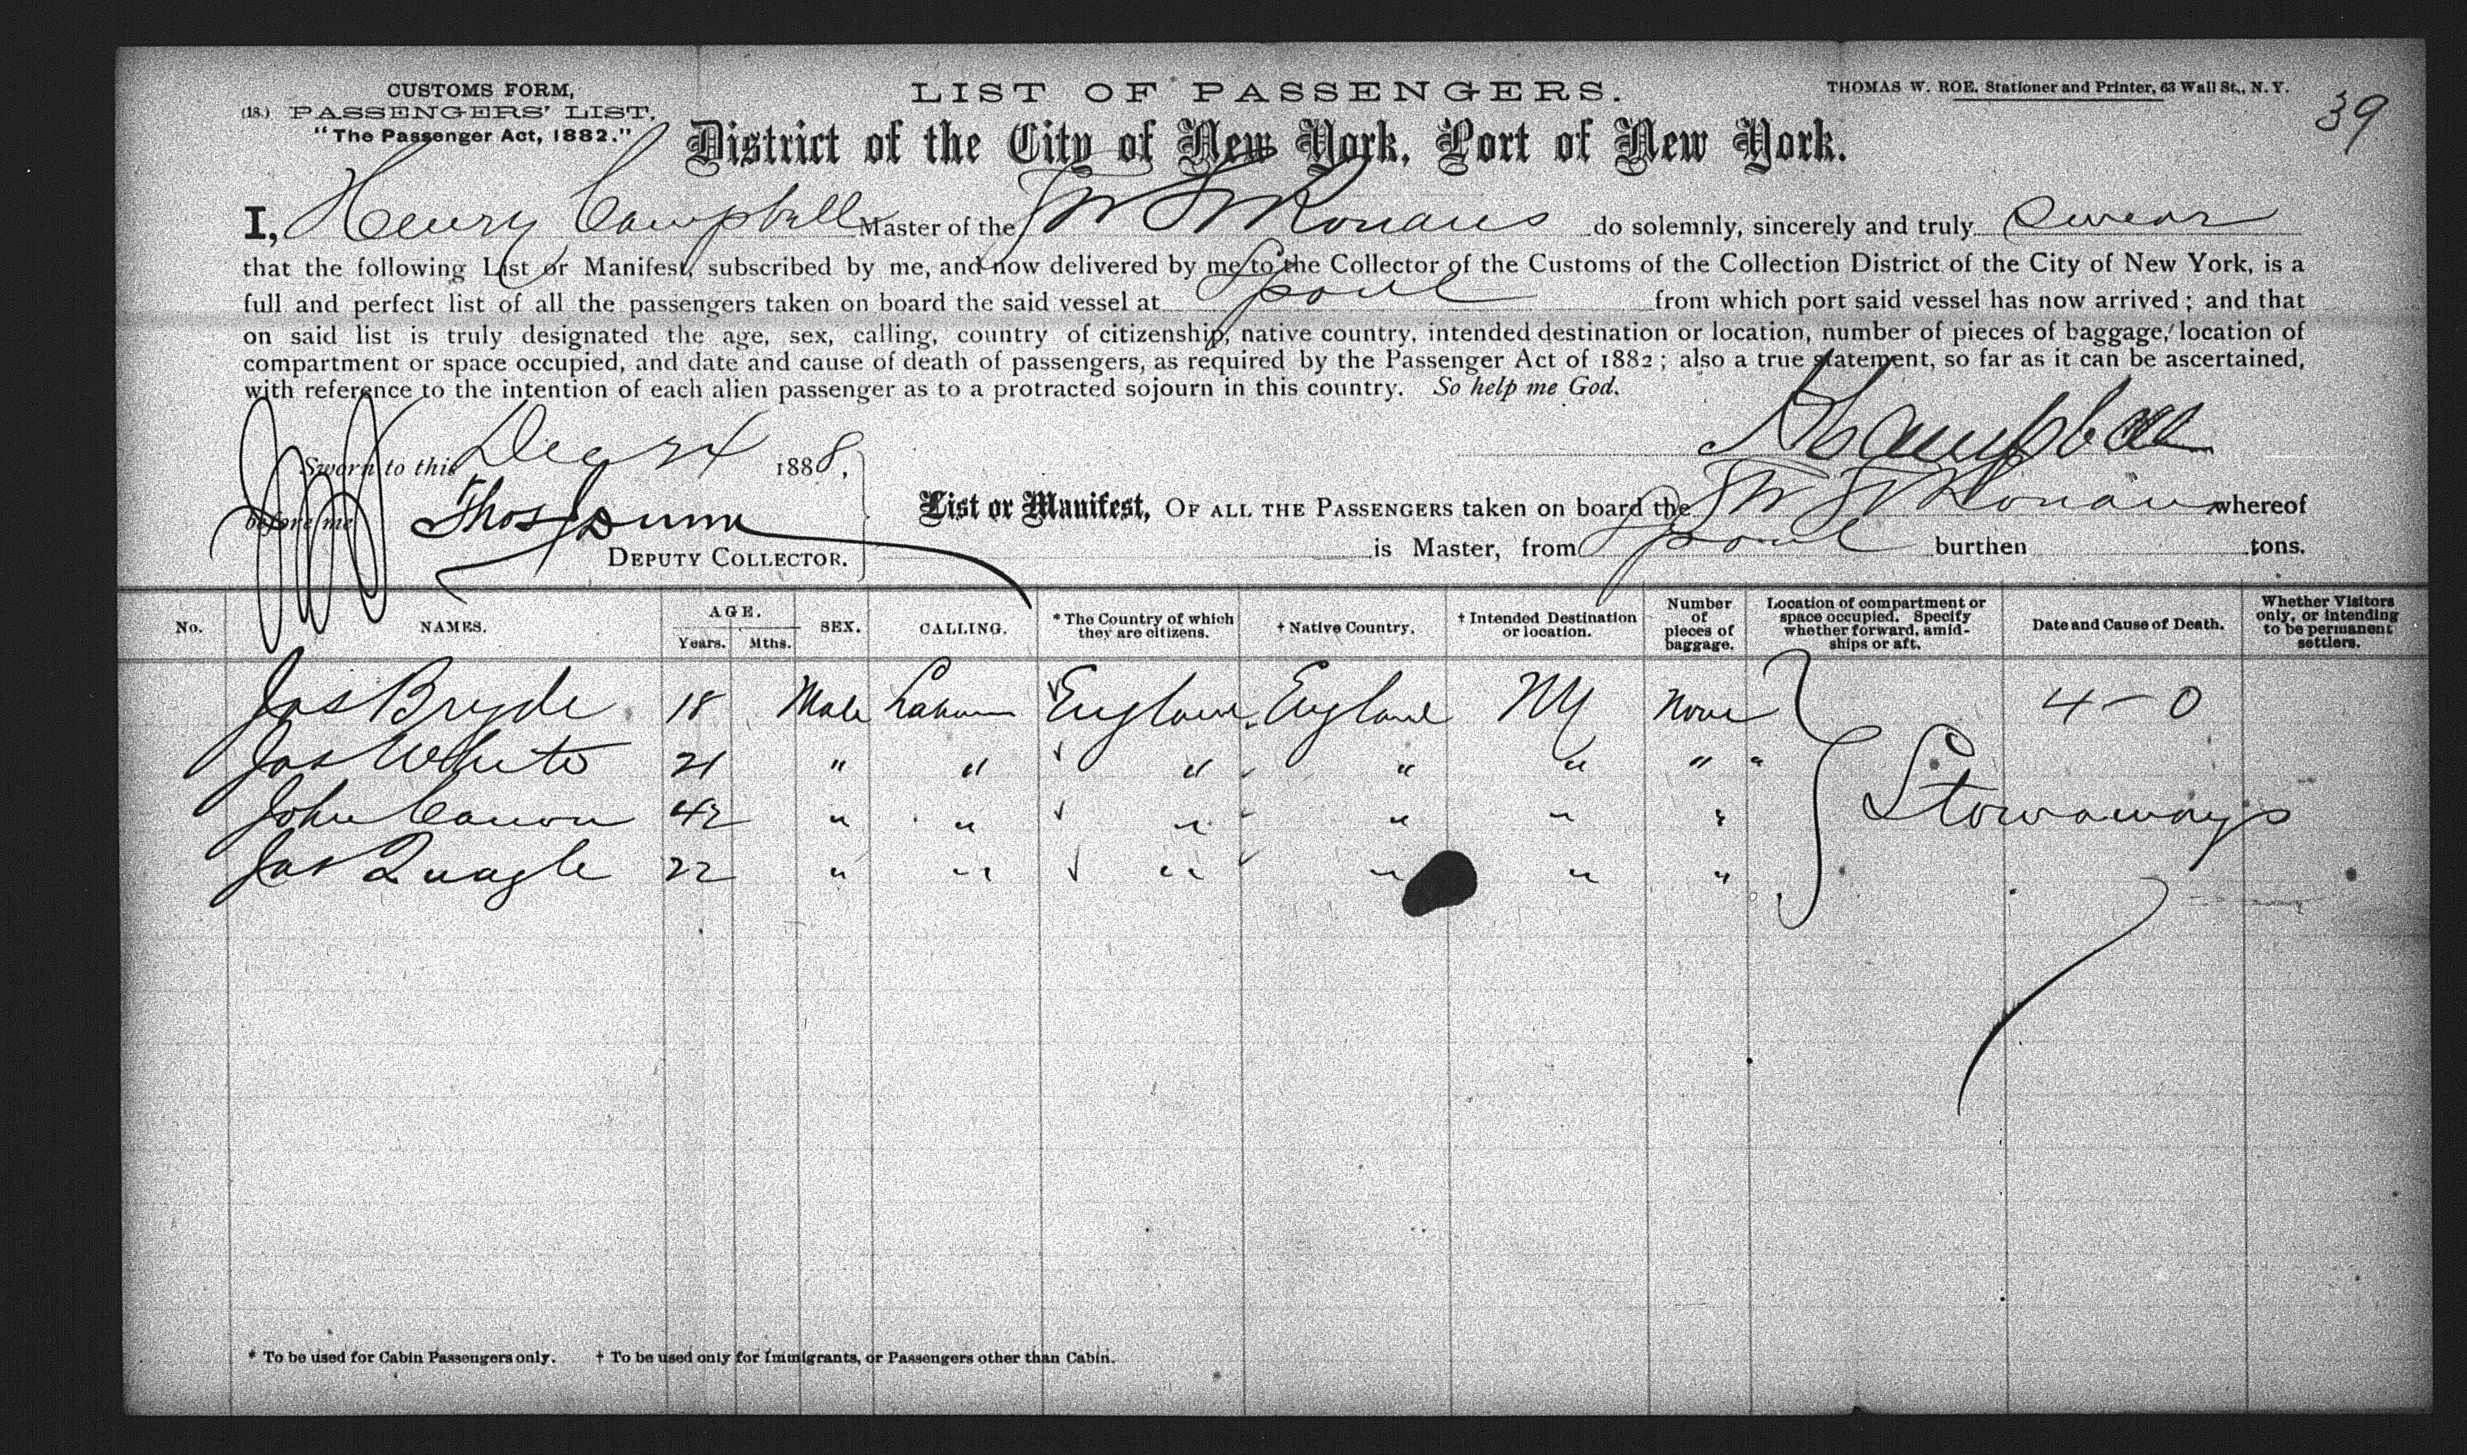 CUSTOMS FORM,
(18.) PASSENGERS' LIST.
"The Passenger Act, 1882."
LIST OF PASSENGERS.
THOMAS W. ROE, Stationer and Printer, 63 Wall St., N. Y.
39
District of the City of New York, Port of New York.
I, Henry Campbell Master of the do solemnly, sincerely and truly swear
that the following List or Manifest, subscribed by me, and now delivered by me to the Collector of the Customs of the Collection District of the City of New York, is a
full and perfect list of all the passengers taken on board the said vessel at L'pool from which port said vessel has now arrived; and that
on said list is truly designated the age, sex, calling, country of citizenship, native country, intended destination or location, number of pieces of baggage, location of
compartment or space occupied, and date and cause of death of passengers, as required by the Passenger Act of 1882; also a true statement, so far as it can be ascertained,
with reference to the intention of each alien passenger as to a protracted sojourn in this country. So help me God.
H Campbell
Sworn to this Dec 24 1888,
before me Thos Dunn
DEPUTY COLLECTOR.
List or Manifest, OF ALL THE PASSENGERS taken on board the whereof
is Master, from L'pool burthen tons.
No. NAMES. AGE. Years. Mths. SEX. CALLING. * The Country of which they are citizens. † Native Country. † Intended Destination or location. Number of pieces of baggage. Location of compartment or space occupied. Specify whether forward, amidships or aft. Date and Cause of Death. Whether Visitors only, or intending to be permanent settlers.
Jas Bryde 18 Male Labour England England NY None 4-0
Jas White 21 " " " " " " "
John Canon 42 " " " " " "
Jas Quagle 22 " " " " " "
Stowaways
* To be used for Cabin Passengers only. † To be used only for Immigrants, or Passengers other than Cabin.